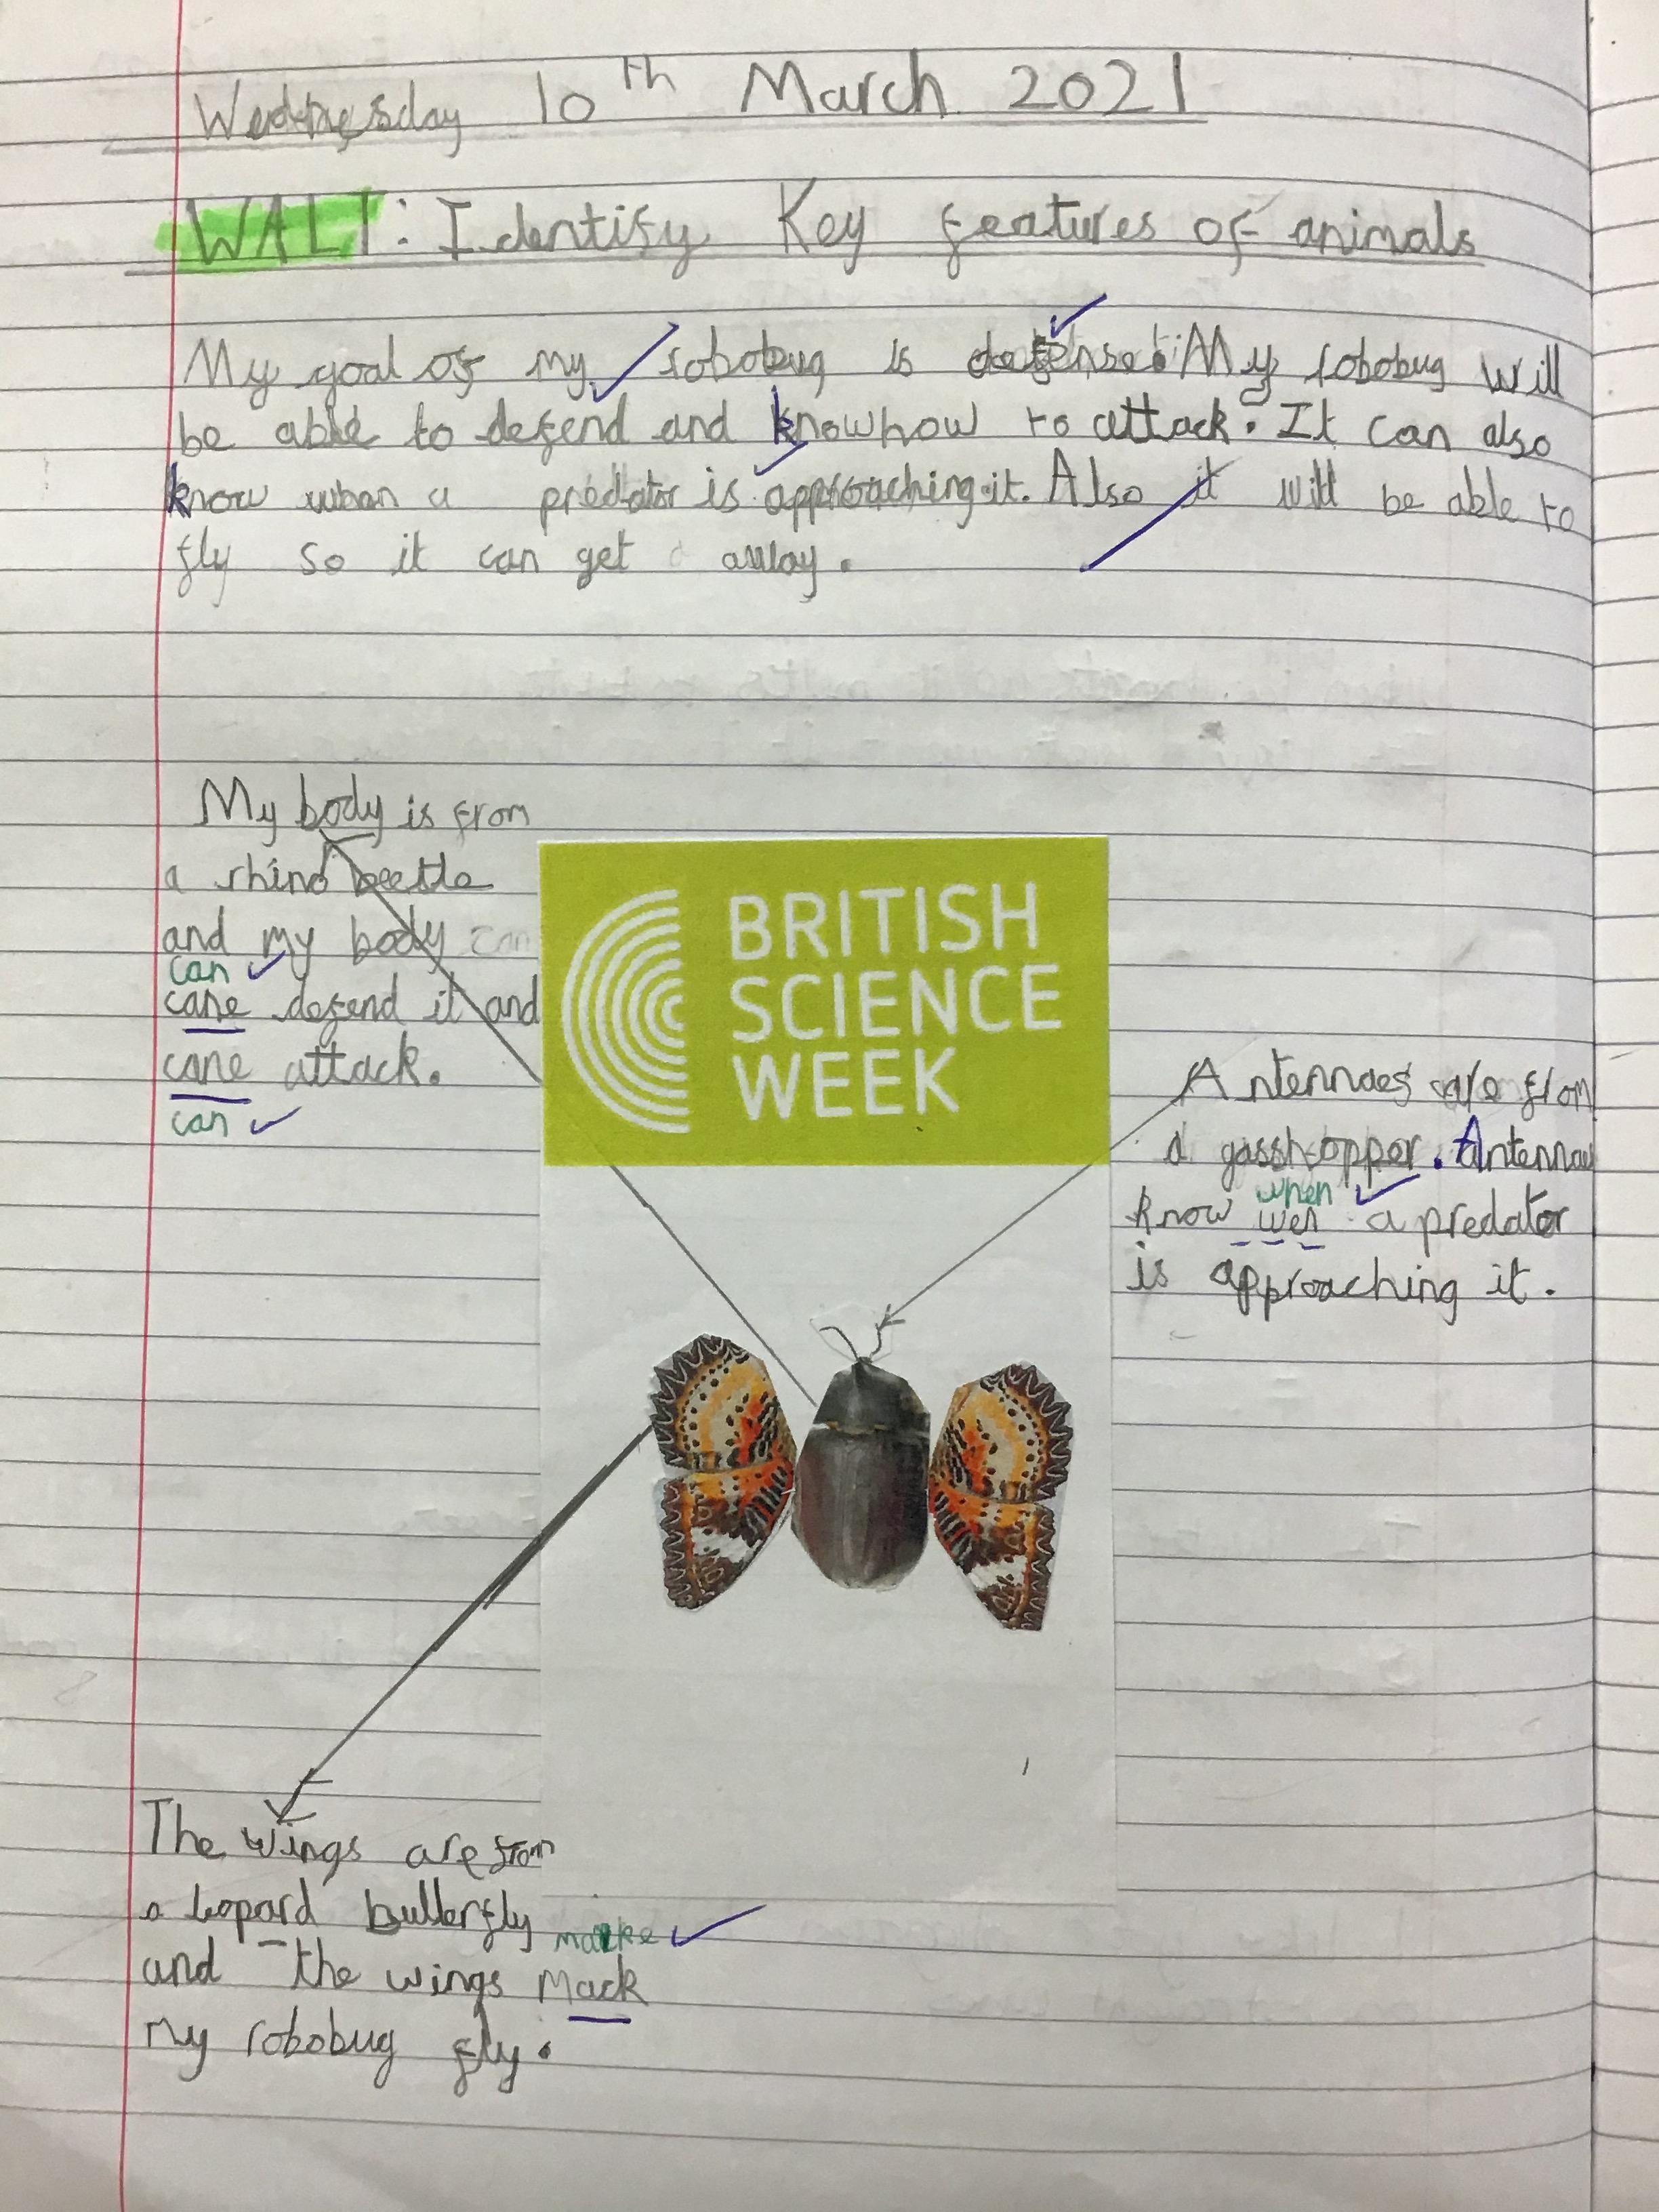 Wednesday 10th March 2021
WALT: Identify Key features of animals
My goal of my robobug is defense. My robobug will
be able to defend and know how to attack. It can also
know when a predator is approaching it. Also it will be able to
fly so it can get away.
My body is from
a rhino beetle
and my body can
can
cane defend it and
cane attack.
can
BRITISH
SCIENCE
WEEK
Antennaes are from
a gasshopper. Antennae
when
know wen a predator
is approaching it.
The wings are from
a lepard butterfly
make
and the wings mack
my robobug fly.